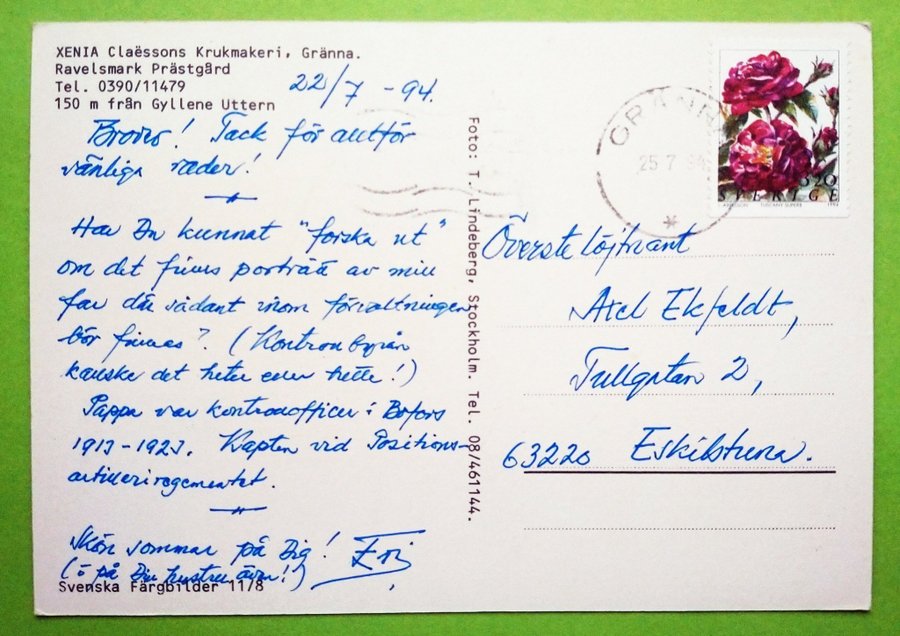 XENIA Claëssons Krukmakeri, Gränna.
Ravelsmark Prästgård
Tel. 0390/11479
150 m från Gyllene Uttern
22/7 -94.
Tack för alltför
vänliga rader!
Har Du kunnat "forska ut"
om det finns porträtt av min
far där sådant inom förvaltningen
bör finnas? (Kontrollbyrån
kanske det heter eller hette!)
Pappa var kontrollofficer i Bofors
1913-1923. Kapten vid Positions-
artilleriregementet.
Skön sommar på Dig!
(o på Din hustru även!)
Svenska Färgbilder 11/8
Foto: T. Lindeberg, Stockholm. Tel. 08/461144.
GRÄNN
25 7 94
3.20
SVERIGE
TUSCANY SUPERB
1994
Överstelöjtnant
Axel Ekfeldt,
Tullgatan 2,
63220 Eskilstuna.